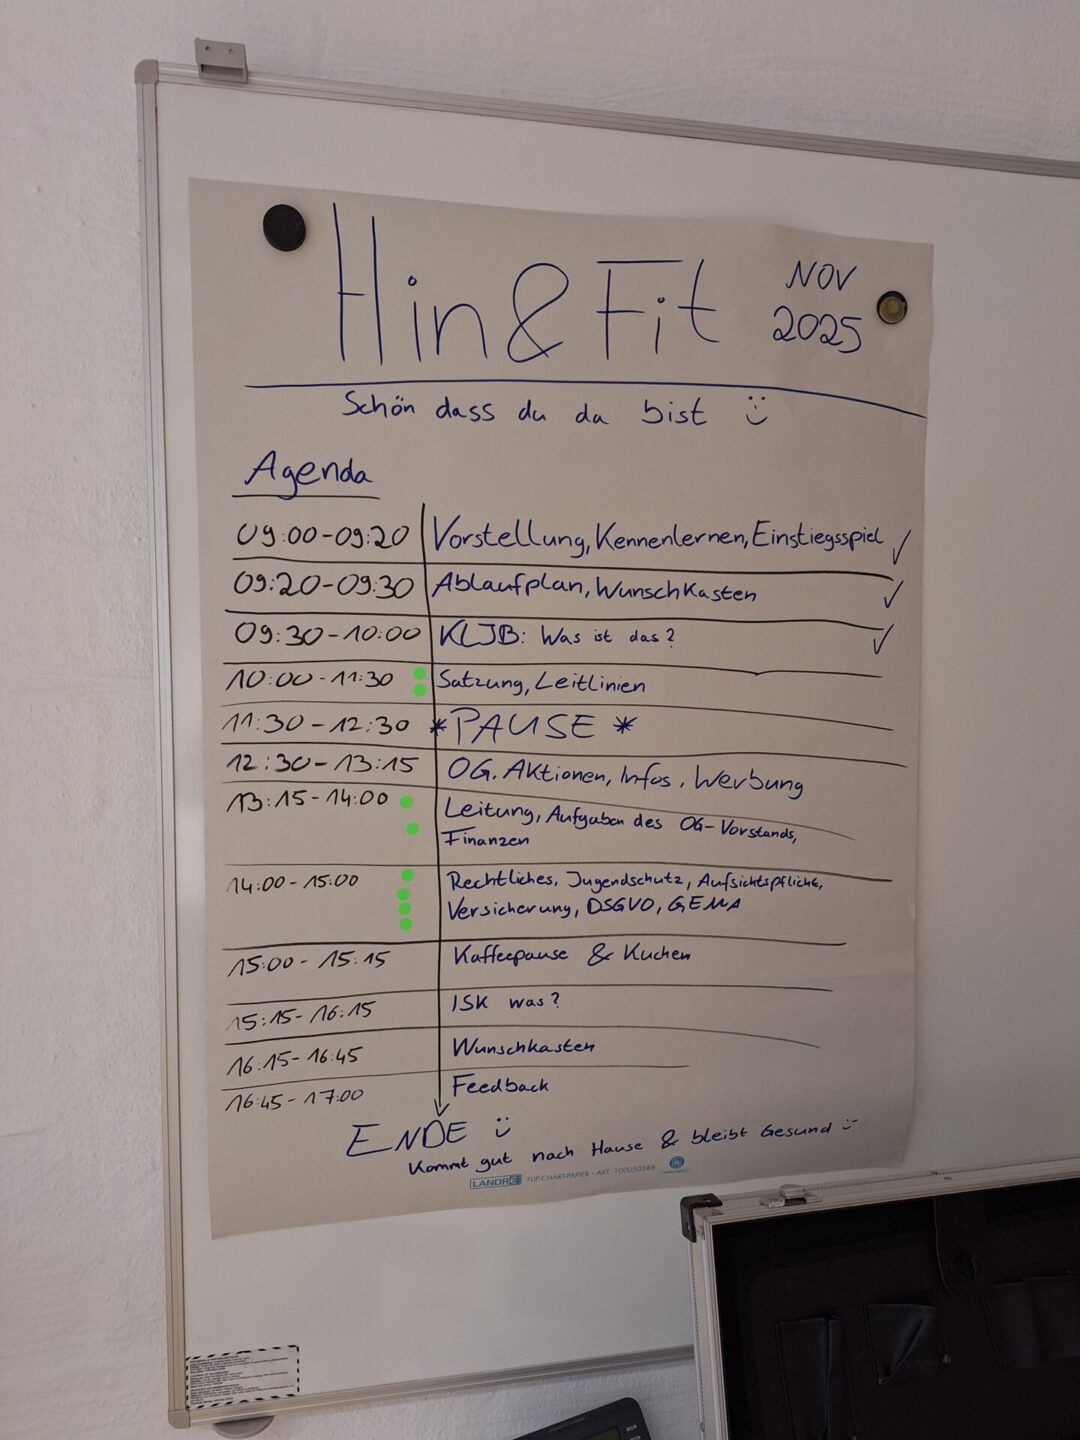 Hin & Fit NOV 2025
Schön dass du da bist
Agenda
09:00-09:20 Vorstellung, Kennenlernen, Einstiegsspiel ✓
09:20-09:30 Ablaufplan, Wunschkasten ✓
09:30-10:00 KLJB: Was ist das? ✓
10:00-11:30 Satzung, Leitlinien
11:30-12:30 *PAUSE*
12:30-13:15 OG. Aktionen, Infos, Werbung
13:15-14:00 Leitung, Aufgaben des OG-Vorstands,
Finanzen
14:00-15:00 Rechtliches, Jugendschutz, Aufsichtspflicht,
Versicherung, DSGVO, GEMA
15:00-15:15 Kaffeepause & Kuchen
15:15-16:15 ISK was?
16:15-16:45 Wunschkasten
16:45-17:00 Feedback
ENDE
Kommt gut nach Hause & bleibt Gesund
LANDRÉ FLIP-CHART-PAPIER - ART. 100050588